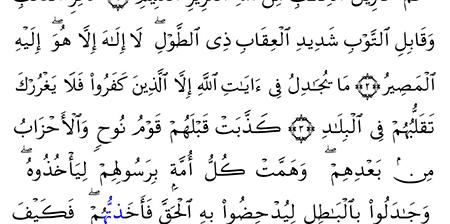 وَقَابِلِ التَّوْبِ شَدِيدِ الْعِقَابِ ذِى الطَّوْلِ ۖ لَا إِلَٰهَ إِلَّا هُوَ ۖ إِلَيْهِ
الْمَصِيرُ ﴿٣﴾ مَا يُجَٰدِلُ فِى ءَايَٰتِ اللَّهِ إِلَّا الَّذِينَ كَفَرُوا۟ فَلَا يَغْرُرْكَ
تَقَلُّبُهُمْ فِى الْبِلَٰدِ ﴿٤﴾ كَذَّبَتْ قَبْلَهُمْ قَوْمُ نُوحٍ وَالْأَحْزَابُ
مِنۢ بَعْدِهِمْ ۖ وَهَمَّتْ كُلُّ أُمَّةٍۭ بِرَسُولِهِمْ لِيَأْخُذُوهُ ۖ
وَجَٰدَلُوا۟ بِالْبَٰطِلِ لِيُدْحِضُوا۟ بِهِ الْحَقَّ فَأَخَذْتُهُمْ ۖ فَكَيْفَ